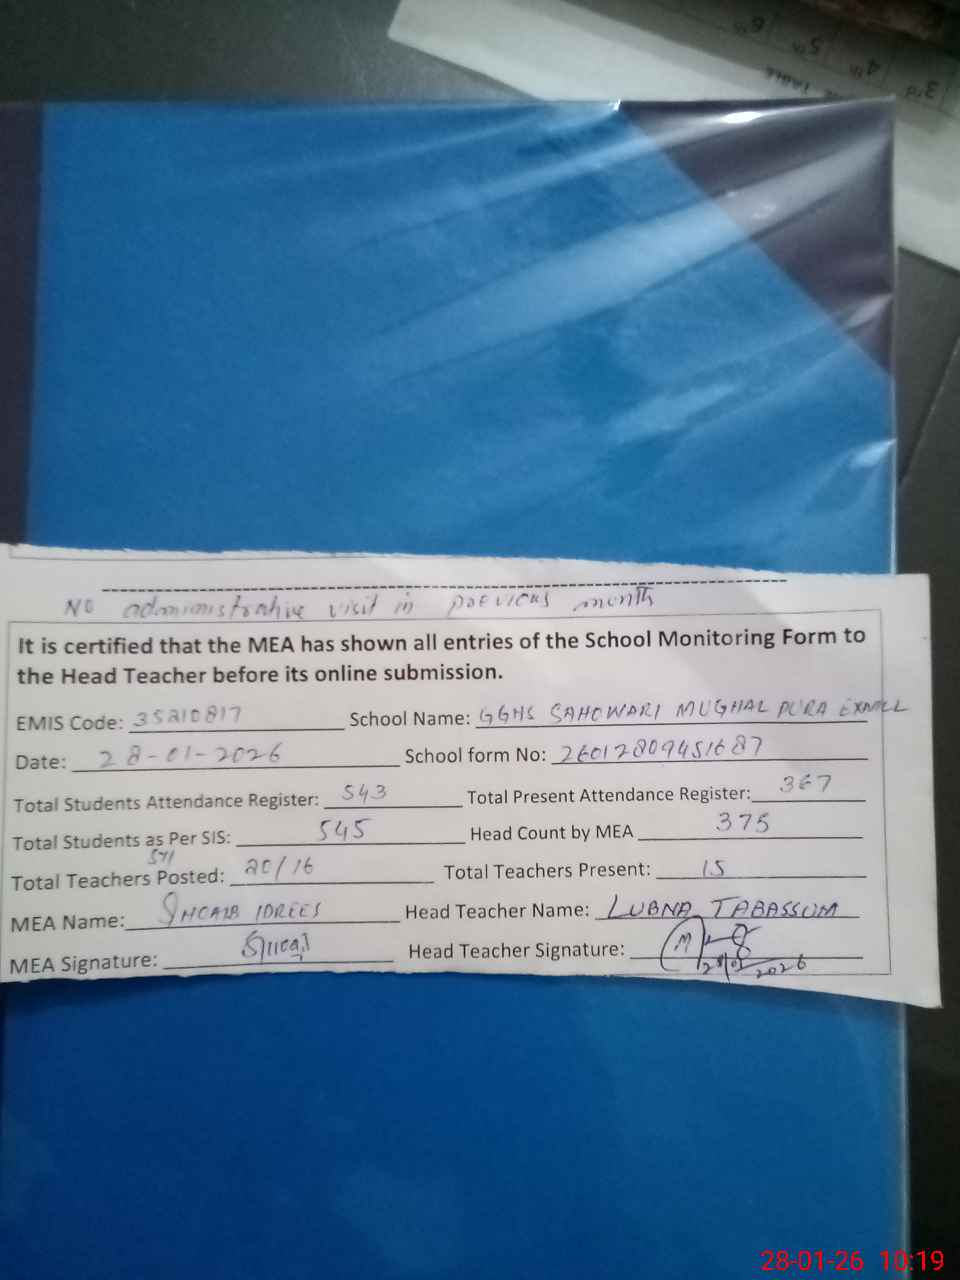 3rd 4th 5th 6th
No administrative visit in previous month
It is certified that the MEA has shown all entries of the School Monitoring Form to
the Head Teacher before its online submission.
EMIS Code: 35210817 School Name: GGHS SAHOWARI MUGHAL PURA EXMCL
Date: 28-01-2026 School form No: 26012809451687
Total Students Attendance Register: 543 Total Present Attendance Register: 367
Total Students as Per SIS: 545 Head Count by MEA 375
Total Teachers Posted: 20/16 Total Teachers Present: 15
MEA Name: SHOAIB IDREES Head Teacher Name: LUBNA TABASSUM
MEA Signature: Head Teacher Signature:
2026
28-01-26 10:19